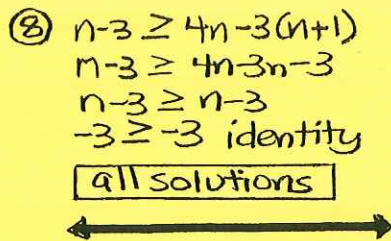 ⑧ n-3 ≥ 4n-3(n+1)
n-3 ≥ 4n-3n-3
n-3 ≥ n-3
-3 ≥ -3 identity
all solutions